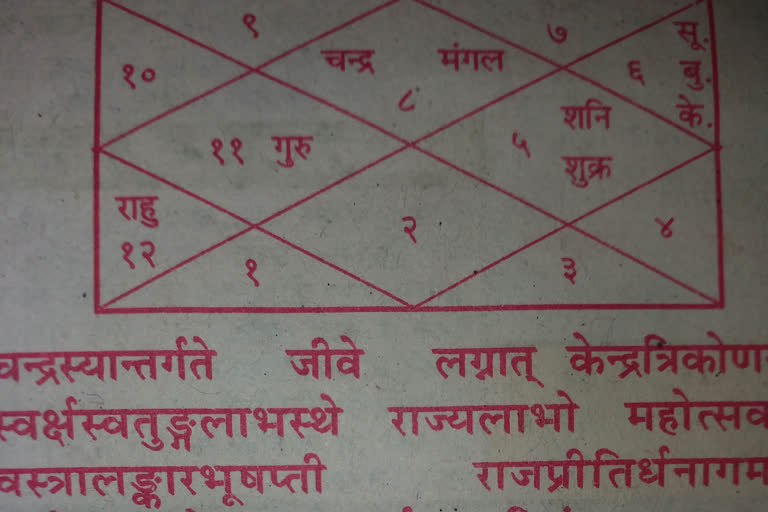 ९ ७ सू.
चन्द्र मंगल
१० ६ बु.
८
शनि के.
११ गुरु ५
शुक्र
राहु
२ ४
१२ १ ३
चन्द्रस्यान्तर्गते जीवे लग्नात् केन्द्रत्रिकोण
स्वर्क्षस्वतुङ्गलाभस्थे राज्यलाभो महोत्सव
वस्त्रालङ्कारभूषप्ती राजप्रीतिर्धनागम